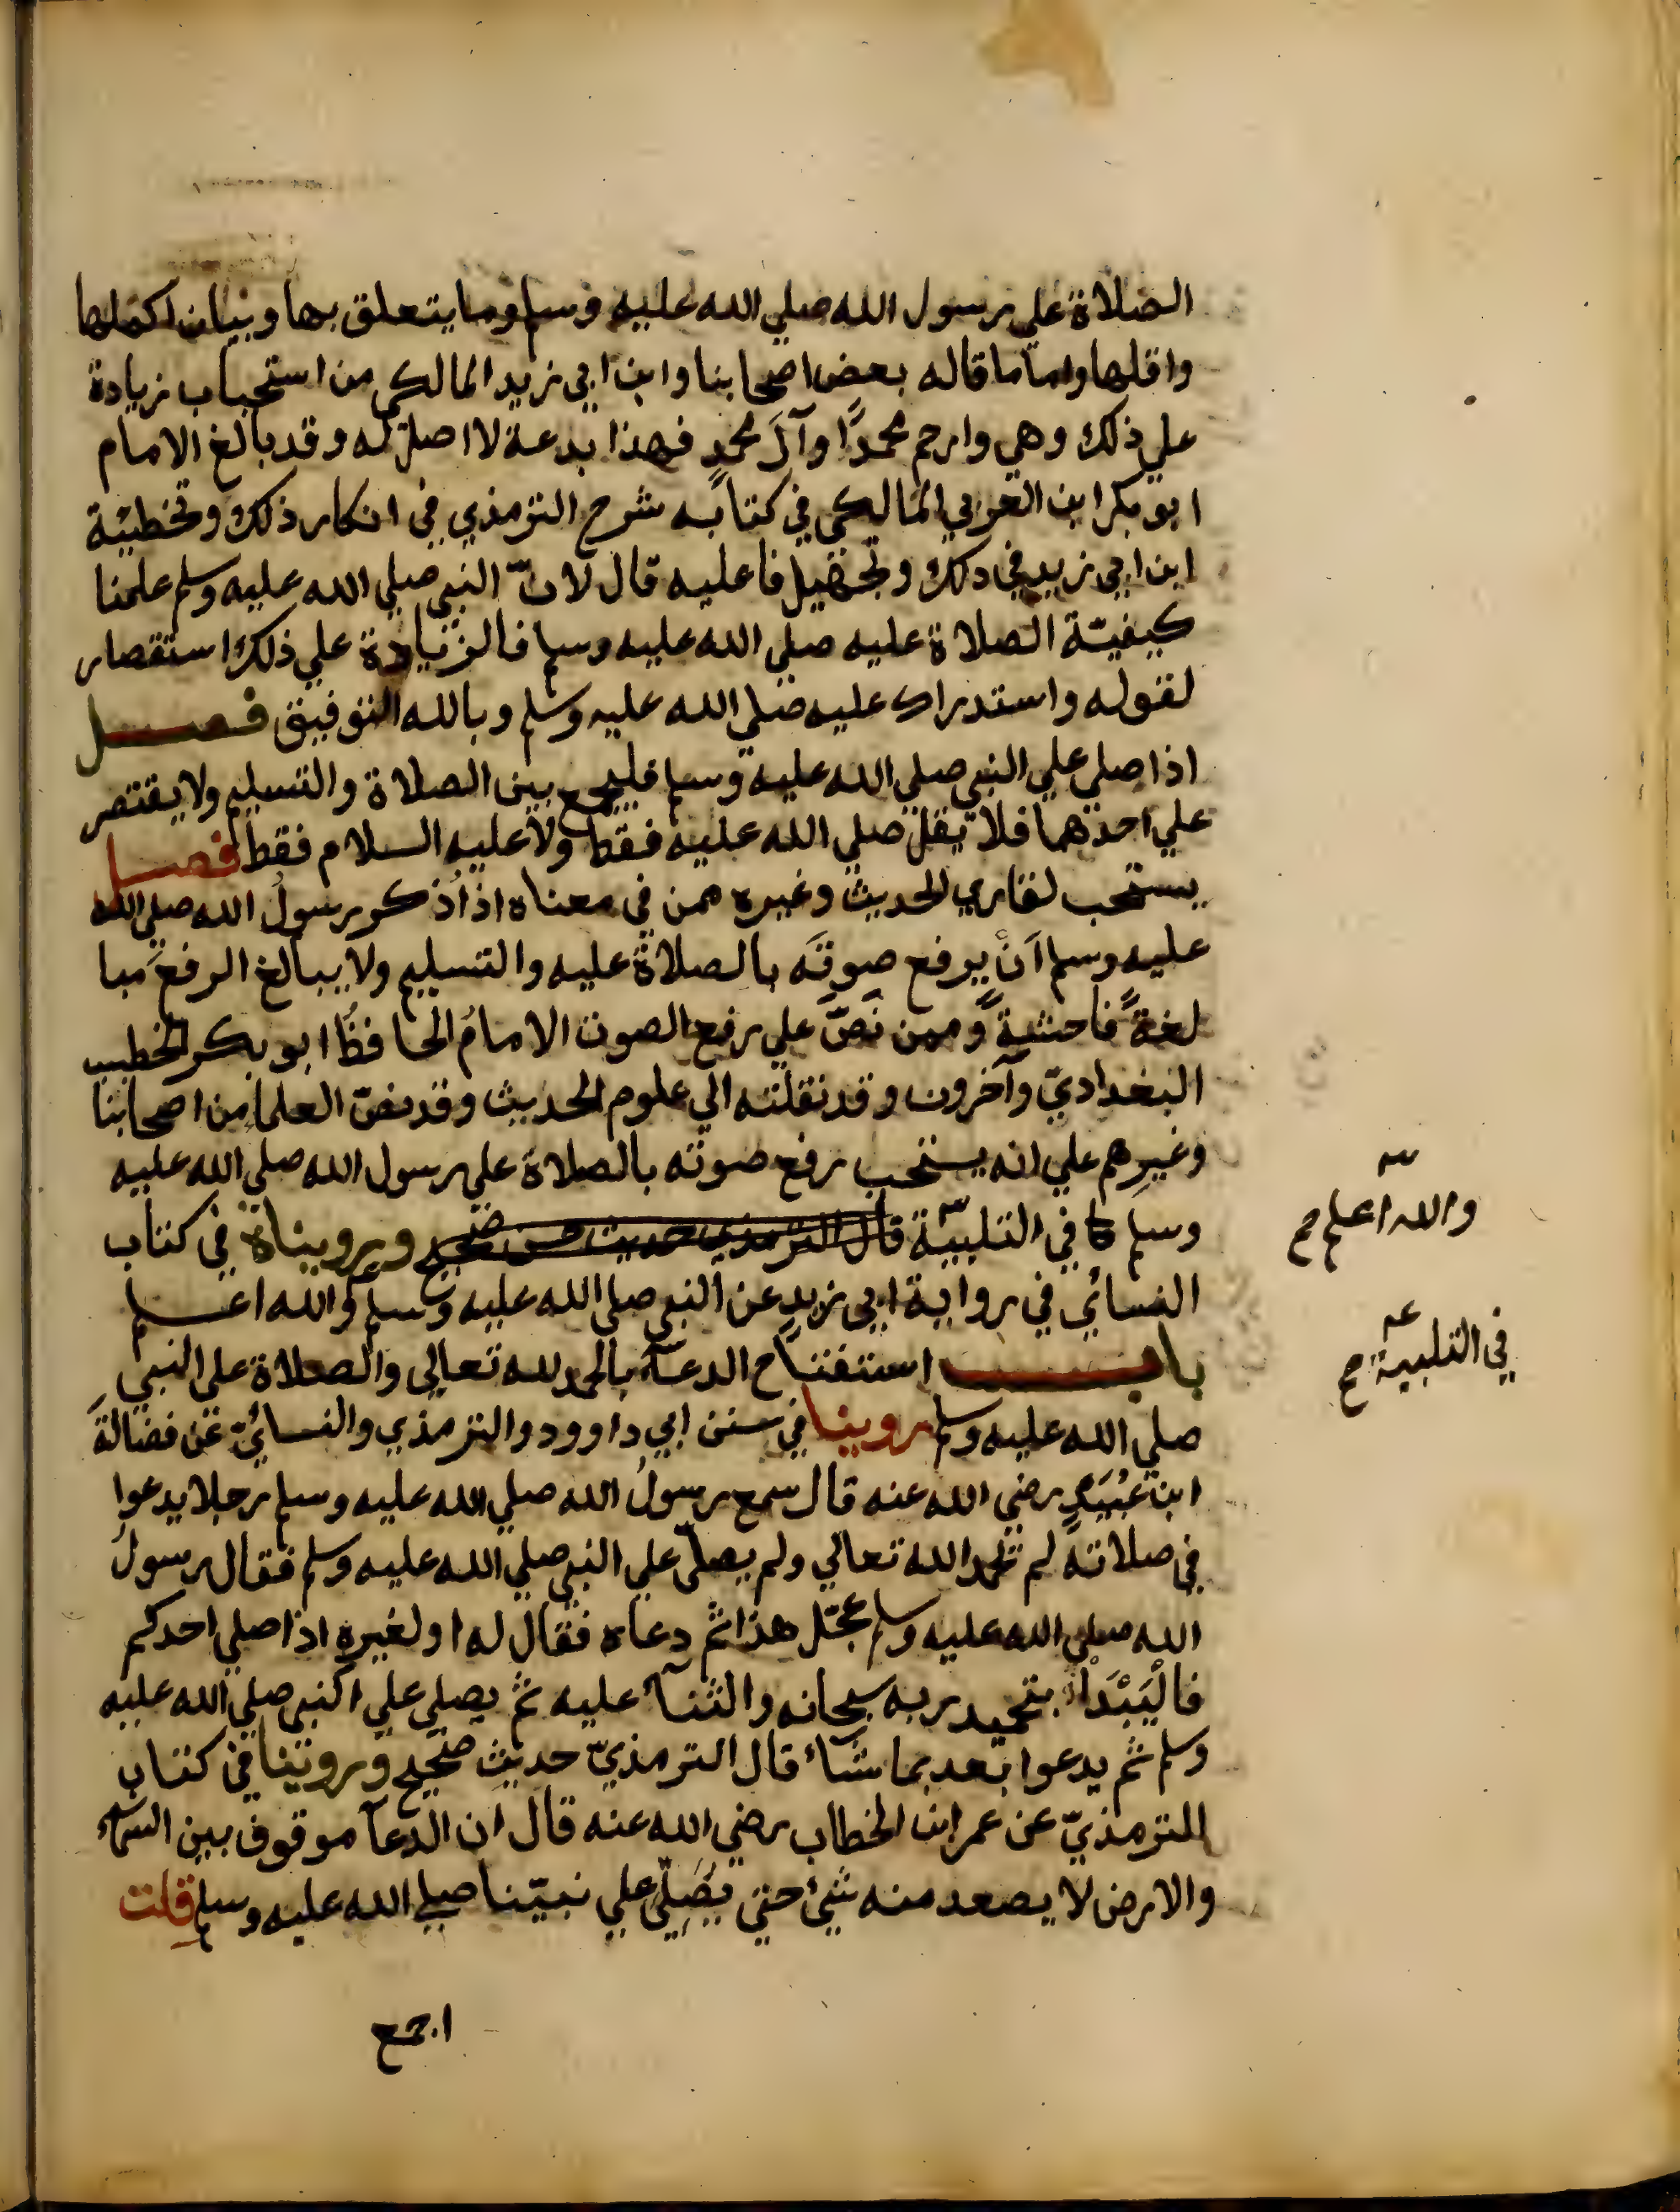 الصلاة علي رسول الله صلي الله عليه وسلم وما يتعلق بها وبيان اكملها
واقلها واما ما قاله بعض اصحابنا وابن ابي زيد المالكي من استحباب زيادة
علي ذلك وهي وارحم محمدًا وآلَ محمدٍ فهذا بدعة لا اصل له وقد بالغ الامام
ابو بكر ابن العربي المالكي في كتابه شرح الترمذي في انكار ذلك وتخطيئة
ابن ابي زيد في ذلك وتجهيل فاعليه قال لانّ النبي صلي الله عليه وسلم علمنا
كيفيّة الصلاة عليه صلي الله عليه وسلم فالزيادة علي ذلك استقصار
لقوله واستدراك عليه صلي الله عليه وسلم وبالله التوفيق فصل
اذا صلي علي النبي صلي الله عليه وسلم فليجمع بين الصلاة والتسليم ولا يقتصر
علي احدهما فلا يقل صلي الله عليه فقط ولا عليه السلام فقط فصل
يستحب لقاري الحديث وغيره ممن في معناه اذا ذُكر رسولُ الله صلي الله
عليه وسلم اَنْ يرفع صوتَه بالصلاة عليه والتسليم ولا يبالغ الرفعَ مبا
لغةً فاحشةً وممن نَصَّ علي رفع الصوت الامامُ الحافظُ ابو بكر الخطيب
البغداديّ وآخرون وقد نقلته الي علوم الحديث وقد نصّ العلما من اصحابنا
وغيرِهم علي انه يستحب رفع صوته بالصلاة علي رسول الله صلي الله عليه
وسلم كما في التلبيّة قال الترمذي حديث حسن صحيح ورويناه في كتاب
النسائي في رواية ابي زيد عن النبي صلي الله عليه وسلم والله اعلم
باب استفتاح الدعآء بالحمد لله تعالي والصلاة علي النبي
صلي الله عليه وسلم روينا في سنن ابي داوود والترمذي والنسائيّ عن فضالةَ
ابن عُبَيدٍ رضي الله عنه قال سمع رسولُ الله صلي الله عليه وسلم رجلا يدعوا
في صلاته لم يحمد الله تعالي ولم يصلّ علي النبي صلي الله عليه وسلم فقال رسولُ
الله صلي الله عليه وسلم عجّل هذا ثم دعاه فقال له او لغيره اذا صلي احدكم
فالْيَبْدَأْ بتحميد ربه سبحانه والثنآء عليه ثم يصلي علي النبي صلي الله عليه
وسلم ثم يدعوا بعد بما شآء قال الترمذيّ حديث صحيح وروينا في كتاب
للترمذيّ عن عمر ابن الخطاب رضي الله عنه قال ان الدعآ موقوف بين السمآء
والارض لا يصعد منه شيئ حتي يُصَلِّي علي نبيّنا صلي الله عليه وسلم قلت
اجمع
والله اعلم صح
في التلبية صح